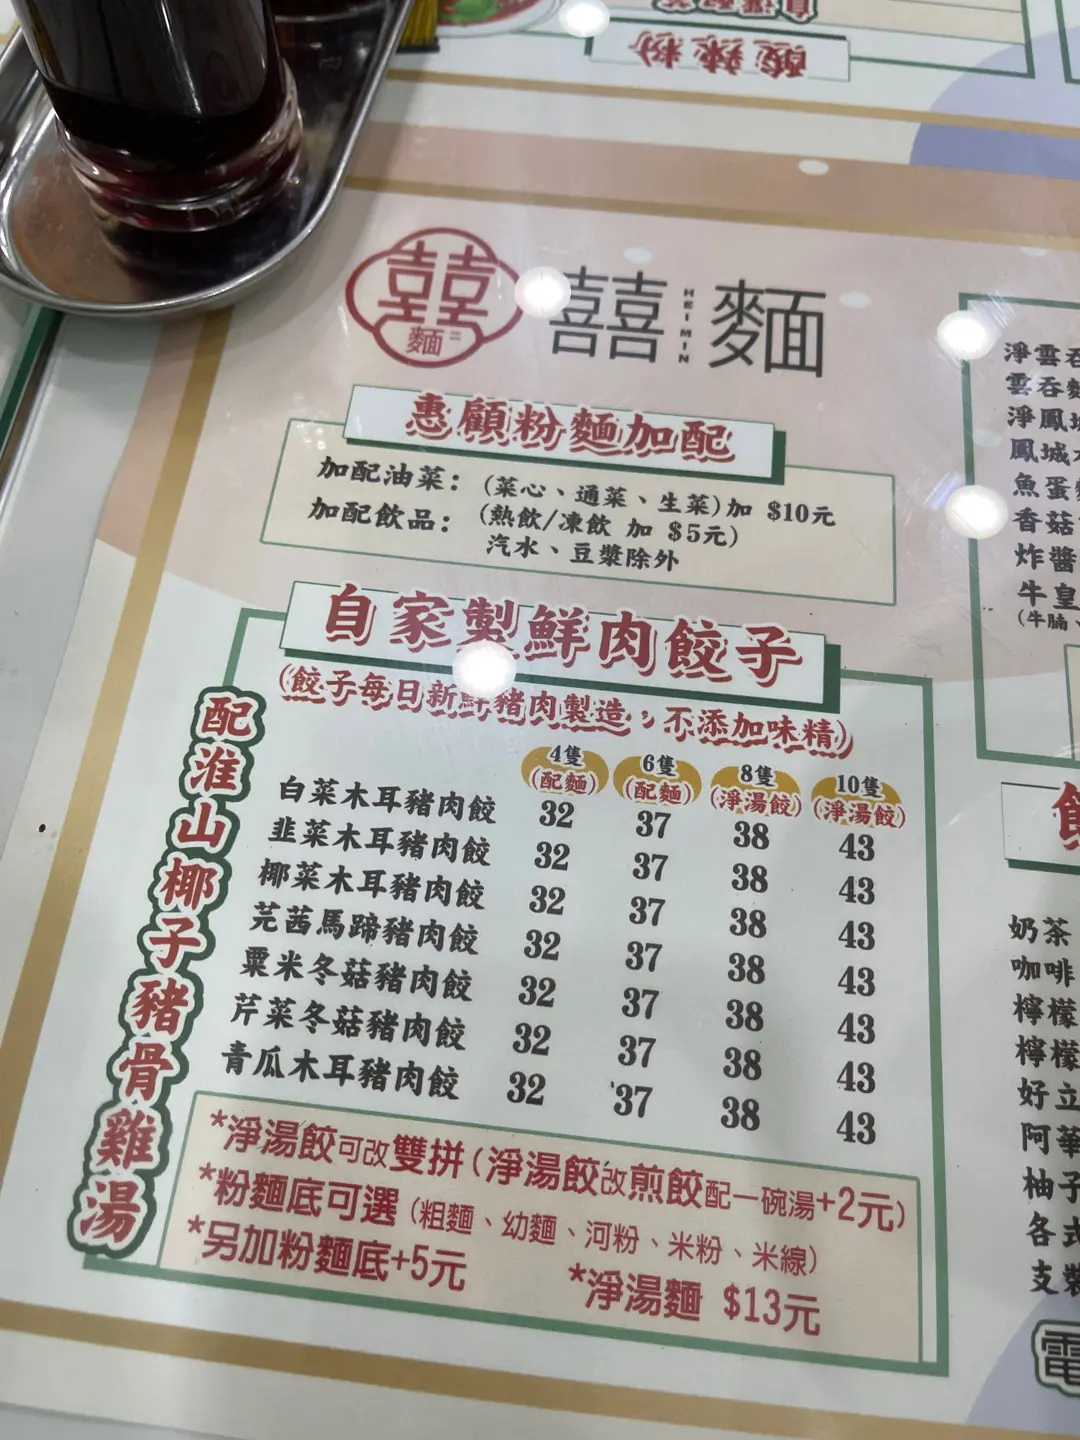 酸辣粉
囍麵
囍囍麵
HEI MIN
惠顧粉麵加配
加配油菜：(菜心、通菜、生菜)加 $10元
加配飲品：(熱飲/凍飲 加 $5元)
汽水、豆漿除外
自家製鮮肉餃子
(餃子每日新鮮豬肉製造，不添加味精)
配淮山椰子豬骨雞湯
4隻 6隻 8隻 10隻
(配麵) (配麵) (淨湯餃) (淨湯餃)
白菜木耳豬肉餃 32 37 38 43
韭菜木耳豬肉餃 32 37 38 43
椰菜木耳豬肉餃 32 37 38 43
芫茜馬蹄豬肉餃 32 37 38 43
粟米冬菇豬肉餃 32 37 38 43
芹菜冬菇豬肉餃 32 37 38 43
青瓜木耳豬肉餃 32 37 38 43
*淨湯餃可改雙拼(淨湯餃改煎餃配一碗湯+2元)
*粉麵底可選(粗麵、幼麵、河粉、米粉、米線)
*另加粉麵底+5元 *淨湯麵 $13元
淨雲吞
雲吞麵
淨鳳城
鳳城水
魚蛋
香菇
炸醬
牛
(牛腩、
奶茶
咖啡
檸檬
檸檬
好立
阿華
柚子
各式
支裝
電